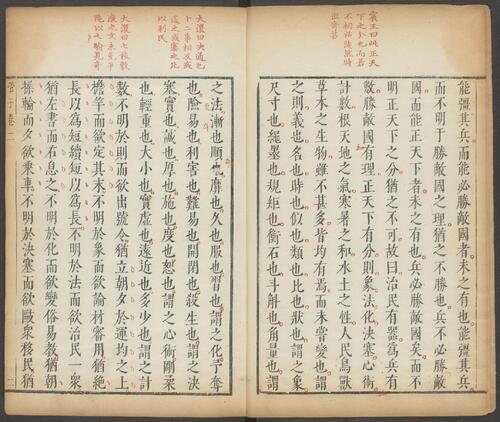 賓王曰此正天
下之分也而若
能彊其兵而能必勝敵國者未之有也能彊其兵
而不明于勝敵國之理猶之不勝也兵不必勝敵
國而能正天下者未之有也兵必勝敵國矣而不
明正天下之分猶之不可故曰治民有器爲兵有
數勝敵國有理正天下有分則象法化決塞心術
計數根天地之氣寒暑之和水土之性人民鳥獸
草木之生物雖不甚多皆均有焉而未嘗變也謂
之則義也名也時也似也類也比也狀也謂之象
尺寸也繩墨也規矩也衡石也斗斛也角量也謂
大復曰決
二事相反或
以利民
之法漸也順也靡也久也服也習也謂之化予奪
也險易也利害也難易也開閉也殺生也謂之決
塞實也誠也厚也施也度也恕也謂之心術剛柔
也輕重也大小也實虛也遠近也多少也謂之計
大復曰七
數不明於則而欲出號令猶立朝夕於運均之上
檐竿而欲定其末不明於象而欲論材審用猶絕
長以為短續短以為長不明於法而欲治民一眾
猶左書而右息之不明於化而欲變俗易教猶朝
揉輪而夕欲乘車不明於決塞而欲敺眾移民猶
管子卷二